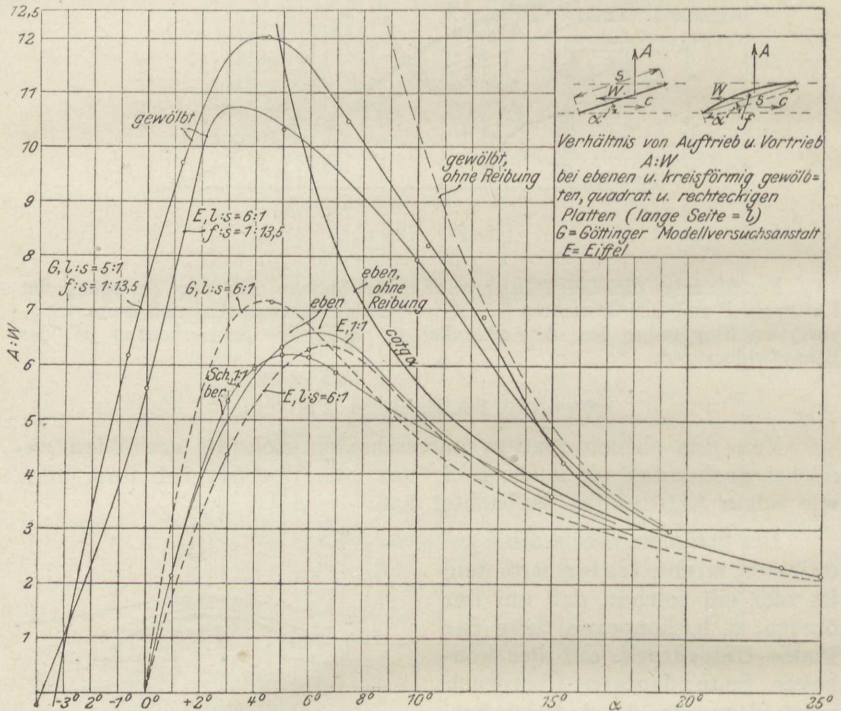 12,5
12
11
10
9
8
7
6
5
4
3
2
1
A:W
-3° 2° -1° 0° +2° 4° 6° 8° 10° 15° α 20° 25°
gewölbt
E, l:s=6:1
f:s=1:13,5
G, l:s=5:1
f:s=1:13,5
G, l:s=6:1
eben
E, 1:1
Sch, 1:1
ber.
E, l:s=6:1
eben,
ohne
Reibung
cotg α
gewölbt,
ohne Reibung
A
s
W
c
α
A
W
s
c
α
f
Verhältnis von Auftrieb u. Vortrieb
A:W
bei ebenen u. kreisförmig gewölb=
ten, quadrat. u. rechteckigen
Platten (lange Seite = l)
G = Göttinger Modellversuchsanstalt
E = Eiffel